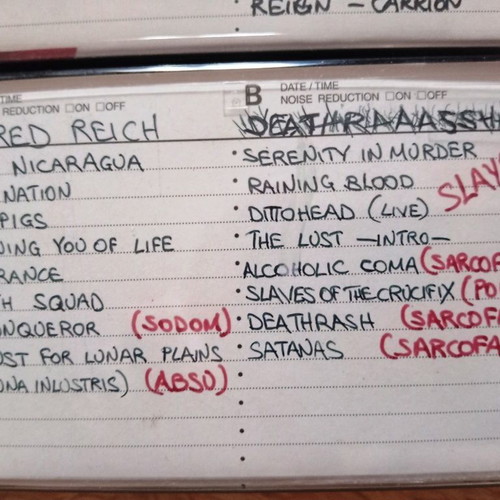 REIGN - CARRION
TIME
REDUCTION □ON □OFF
RED REICH
NICARAGUA
NATION
PIGS
ING YOU OF LIFE
RANCE
H SQUAD
NQUEROR (SODOM)
ST FOR LUNAR PLAINS
NA INLUSTRIS) (ABSU)
B DATE / TIME
NOISE REDUCTION □ON □OFF
DEATHRAAASSH
• SERENITY IN MURDER
• RAINING BLOOD SLAY
• DITTOHEAD (LIVE)
• THE LUST -INTRO-
• ALCOHOLIC COMA (SARCOF
• SLAVES OF THE CRUCIFIX (PO
• DEATHRASH (SARCOFA
• SATANAS (SARCOFA